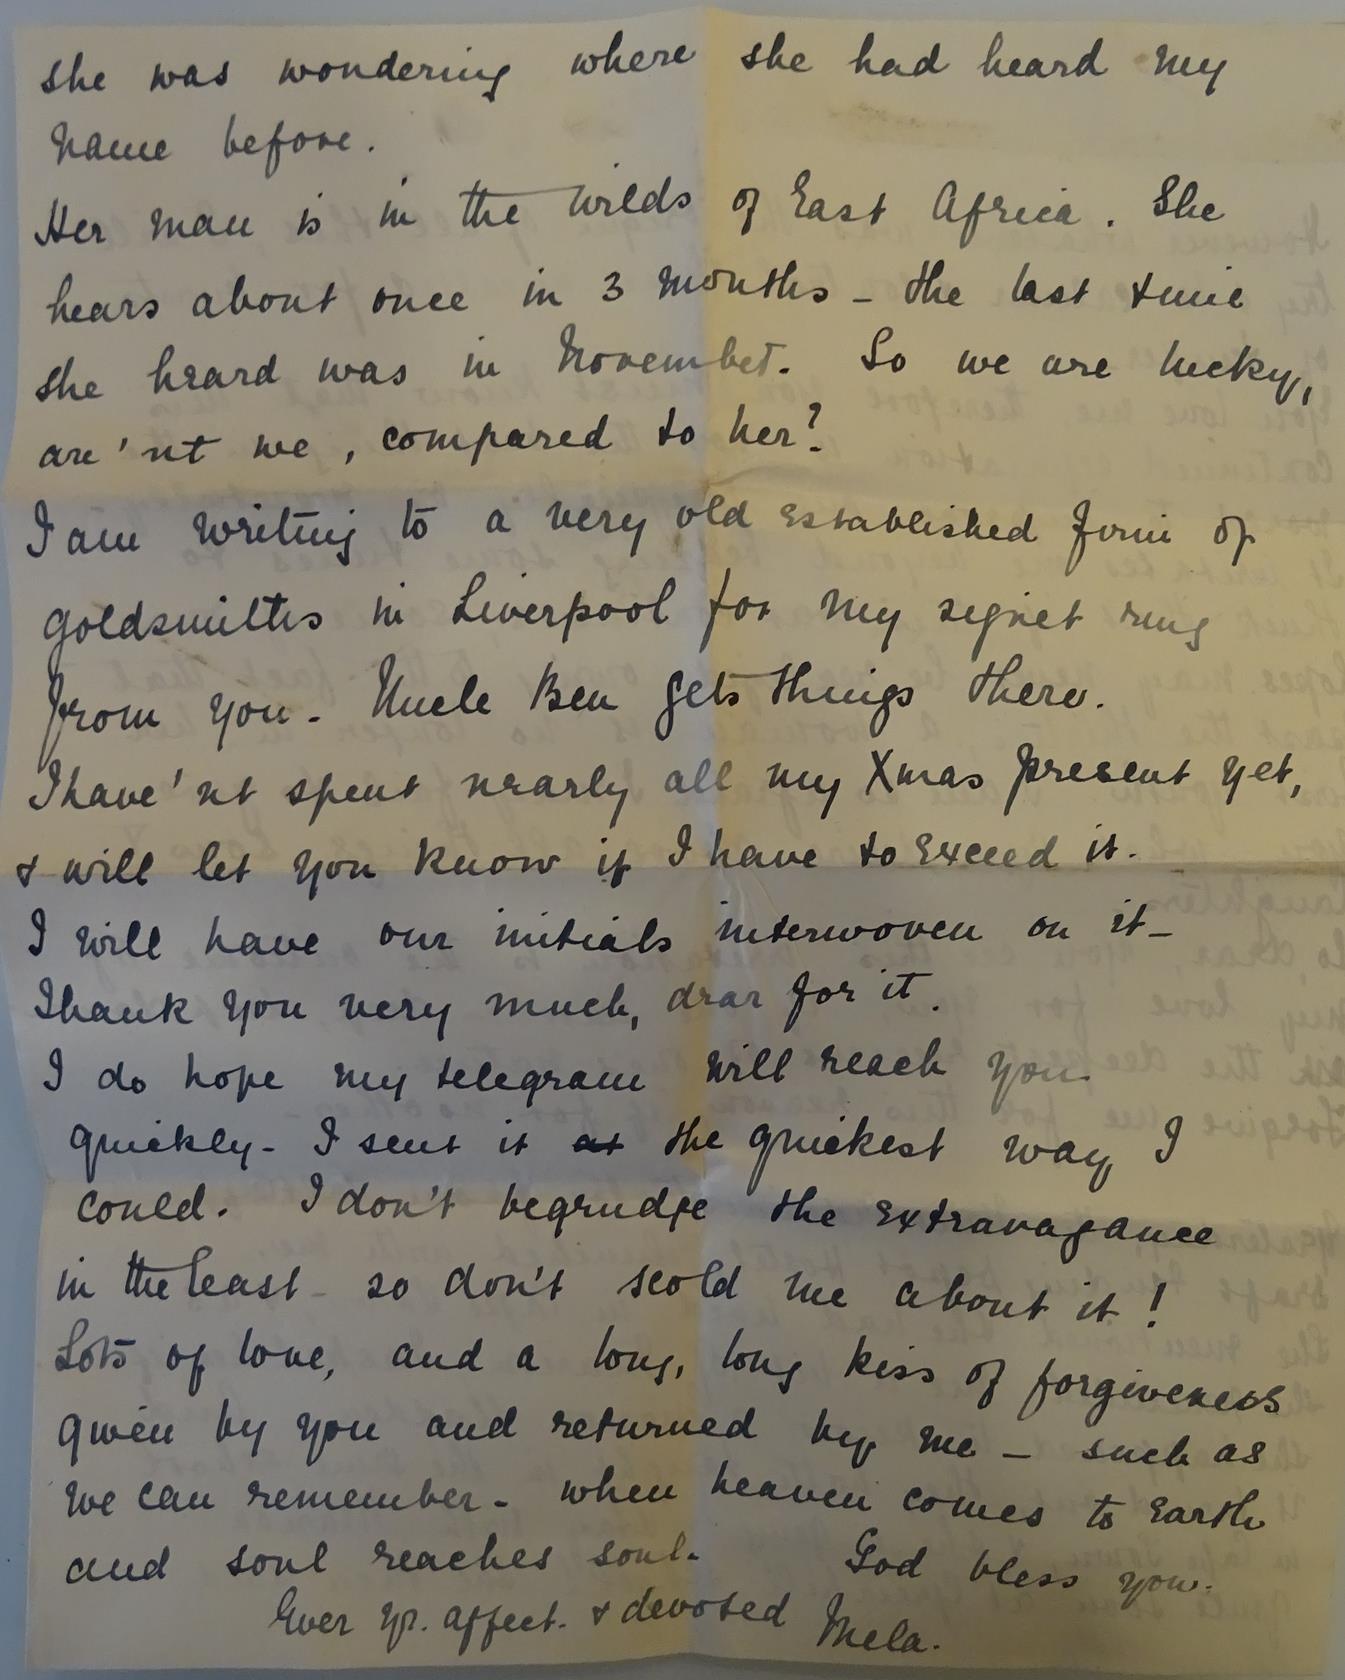 she was wondering where she had heard my
name before.
Her man is in the wilds of East Africa. She
hears about once in 3 months - the last time
she heard was in November. So we are lucky,
are'nt we, compared to her?
I am writing to a very old established firm of
goldsmiths in Liverpool for my signet ring
from you. Uncle Ben gets things there.
I have'nt spent nearly all my Xmas present yet,
& will let you know if I have to exceed it.
I will have our initials interwoven on it -
Thank you very much, dear for it.
I do hope my telegram will reach you
quickly - I sent it at the quickest way I
could. I don't begrudge the extravagance
in the least - so don't scold me about it!
Lots of love, and a long, long kiss of forgiveness
given by you and returned by me - such as
we can remember - when heaven comes to Earth
and soul reaches soul. God bless you.
Ever yr. affect. & devoted Mela.